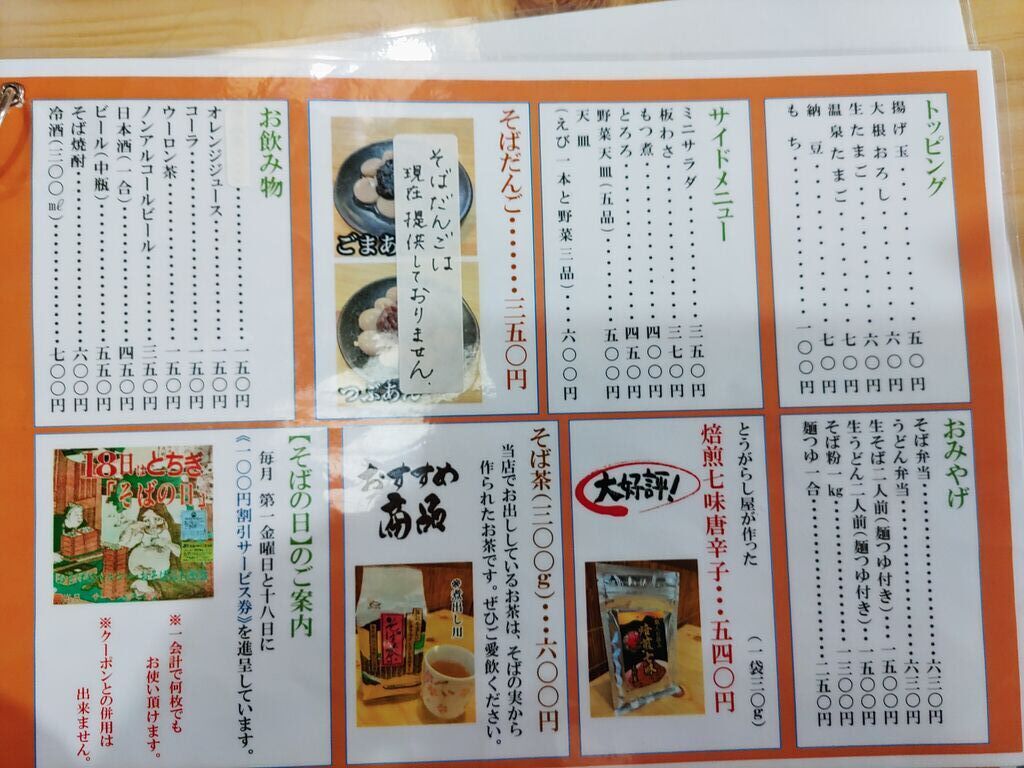 トッピング
揚げ玉・・・・・・・・・・五〇円
大根おろし・・・・・・・・六〇円
生たまご・・・・・・・・・七〇円
温泉たまご・・・・・・・・七〇円
納豆・・・・・・・・・・・七〇円
もち・・・・・・・・・・一〇〇円
サイドメニュー
ミニサラダ・・・・・・・三五〇円
板わさ・・・・・・・・・三七〇円
もつ煮・・・・・・・・・四〇〇円
とろろ・・・・・・・・・四五〇円
野菜天皿(五品)・・・・・五〇〇円
天皿
(えび一本と野菜三品)・・・六〇〇円
そばだんご・・・・・・・三五〇円
そばだんごは
現在提供しておりません.
ごまあ
つぶあん
お飲み物
オレンジジュース・・・・・一五〇円
コーラ・・・・・・・・・・一五〇円
ウーロン茶・・・・・・・・一五〇円
ノンアルコールビール・・・三五〇円
日本酒(一合)・・・・・・・四五〇円
ビール(中瓶)・・・・・・・五五〇円
そば焼酎・・・・・・・・・六〇〇円
冷酒(三〇〇㎖)・・・・・・七〇〇円
おみやげ
そば弁当・・・・・・・・・六三〇円
うどん弁当・・・・・・・・六三〇円
生そば二人前(麺つゆ付き)・一五〇〇円
生うどん二人前(麺つゆ付き)・一五〇〇円
そば粉 kg・・・・・・・一三〇〇円
麺つゆ一合・・・・・・・・二五〇円
とうがらし屋が作った
焙煎七味唐辛子・・・五四〇円
(一袋三〇g)
大好評!
そば茶(三〇〇g)・・・六〇〇円
当店でお出ししているお茶は、そばの実から
作られたお茶です。ぜひご愛飲ください。
おすすめ
商品
※煮出し用
そば茶
【そばの日】のご案内
毎月 第一金曜日と十八日に
《一〇〇円割引サービス券》を進呈しています。
※一会計で何枚でも
お使い頂けます。
※クーポンとの併用は
出来ません。
18日はとちぎ
「そばの日」